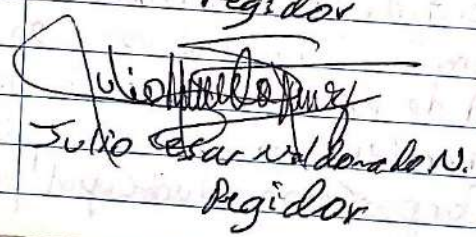 Regidor
Julio
Julio Cesar Maldonado N.
Regidor